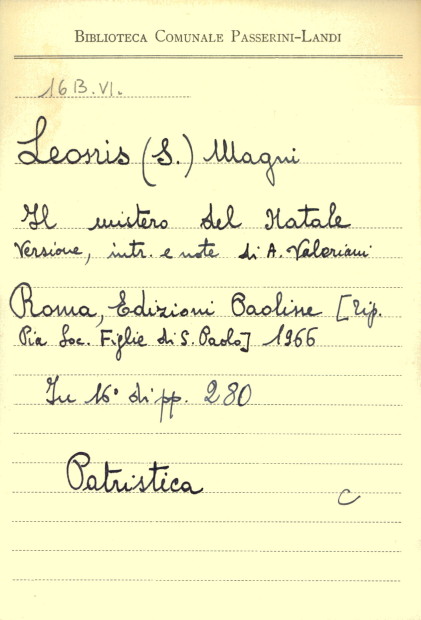 BIBLIOTECA COMUNALE PASSERINI-LANDI
16 B. VI.
Leonis (S.) Magni
Il mistero del Natale
Versione, intr. e note di A. Valeriani
Roma, Edizioni Paoline [tip.
Pia Soc. Figlie di S. Paolo] 1966
In 16° di pp. 280
Patristica
C